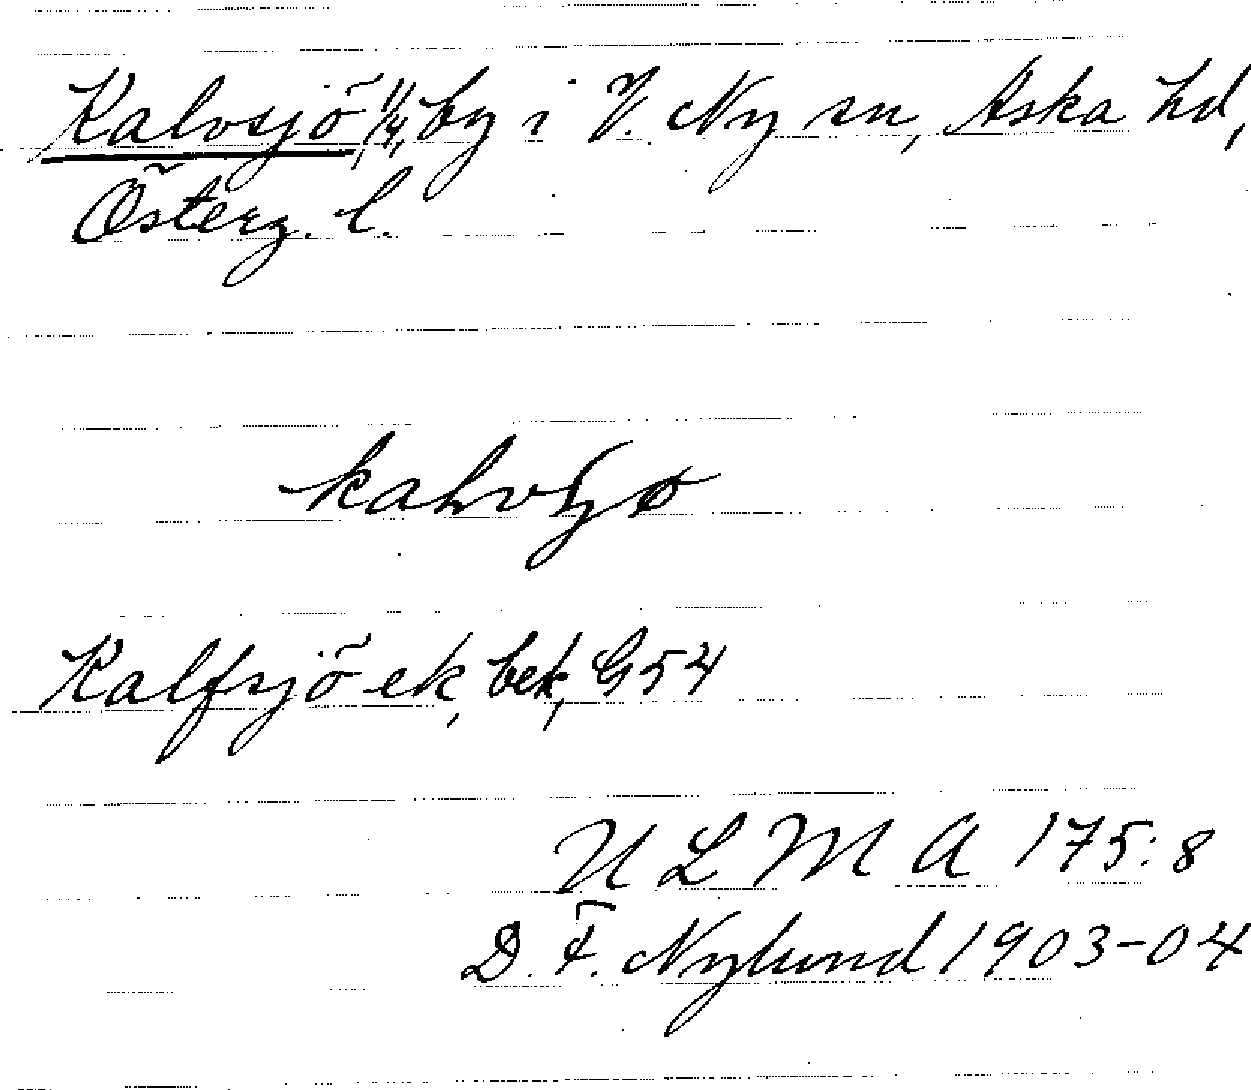 Kalvsjö 1/4, by i V. Ny sn, Aska hd,
Österg. l.
Kalfsjö ek, bek, G54
ULMA 175:8
D. F. Nylund 1903-04